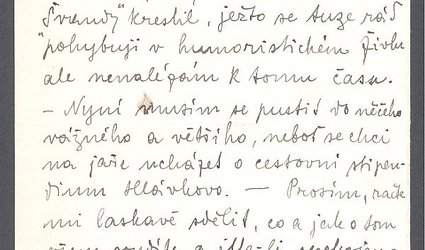 Švandy" kreslil, ježto se tuze rád
"pohybuji v humoristickém živlu
ale nenalézám k tomu času.
– Nyní musím se pustit do něčeho
vážného a většího, neboť se chci
na jaře ucházet o cestovní stipen-
dium Hlávkovo. — Prosím, račte
mi laskavě sdělit, co a jak o tom
soudíte a